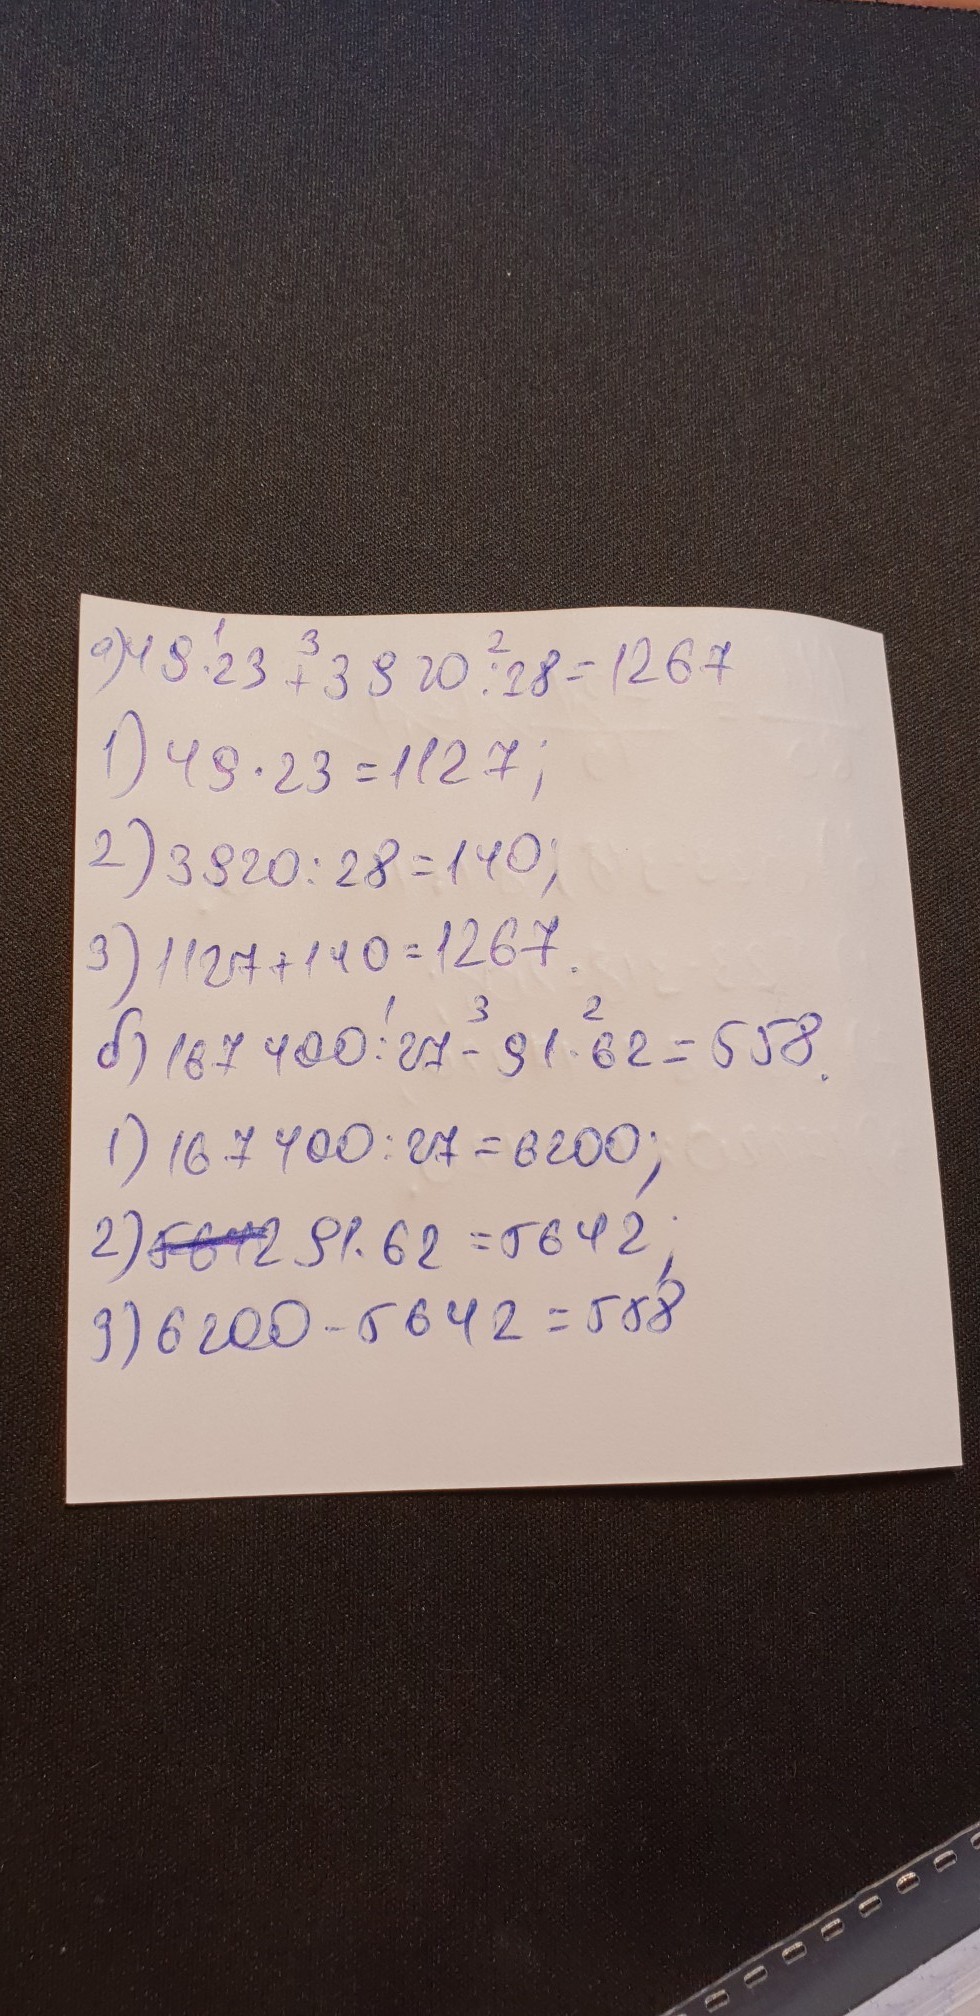 а) 49·23+3920:28=1267
1) 49·23=1127;
2) 3920:28=140;
3) 1127+140=1267.
б) 167 400:27-91·62=558.
1) 167 400:27=6200;
2) 5642 91·62=5642;
3) 6200-5642=558